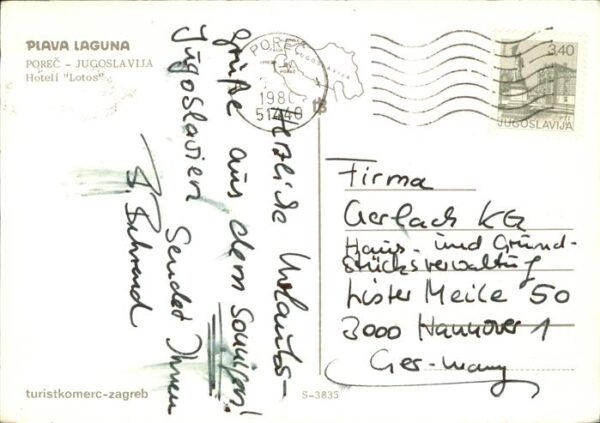 PLAVA LAGUNA
POREČ – JUGOSLAVIJA
Hoteli "Lotos"
POREČ
JUGOSLAVIJA
198
51440
3,40
JUGOSLAVIJA
Herzliche Urlaubs-
grüße aus dem sonnigen!
Jugoslavien sendet Ihnen
Firma
Gerlach KG
Haus- und Grund-
stücksverwaltung
Lister Meile 50
3000 Hannover 1
Germany
turistkomerc-zagreb
S-3835